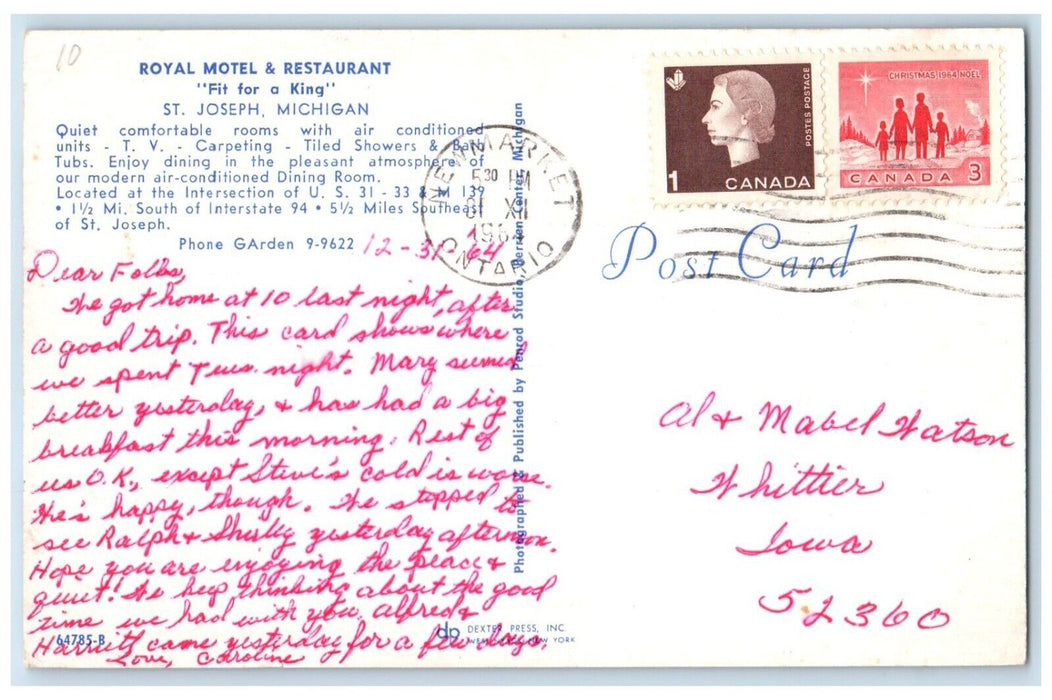 10
ROYAL MOTEL & RESTAURANT
"Fit for a King"
ST. JOSEPH, MICHIGAN
Quiet comfortable rooms with air conditioned
units - T. V. - Carpeting - Tiled Showers & Bath
Tubs. Enjoy dining in the pleasant atmosphere of
our modern air-conditioned Dining Room.
Located at the Intersection of U. S. 31 - 33 & M 139
• 1½ Mi. South of Interstate 94 • 5½ Miles Southeast
of St. Joseph.
Phone GArden 9-9622
12-31-64
Dear Folks,
We got home at 10 last night, after
a good trip. This card shows where
we spent Tues. night. Mary seemed
better yesterday, & has had a big
breakfast this morning. Rest of
us O.K., except Steve's cold is worse.
He's happy, though. We stopped to
see Ralph & Shirley yesterday afternoon.
Hope you are enjoying the peace &
quiet! We keep thinking about the good
time we had with you. Alfred &
Harriett came yesterday for a few days.
Love, Caroline
64785-B
dp DEXTER PRESS, INC.
WEST NYACK, NEW YORK
Photographed & Published by Penrod Studio, Berrien Center, Michigan
NEWMARKET
5 30 PM
31 XII
1964
ONTARIO
POSTES POSTAGE
1 CANADA
CHRISTMAS 1964 NOËL
CANADA 3
Post Card
Al & Mabel Watson
Whittier
Iowa
52360